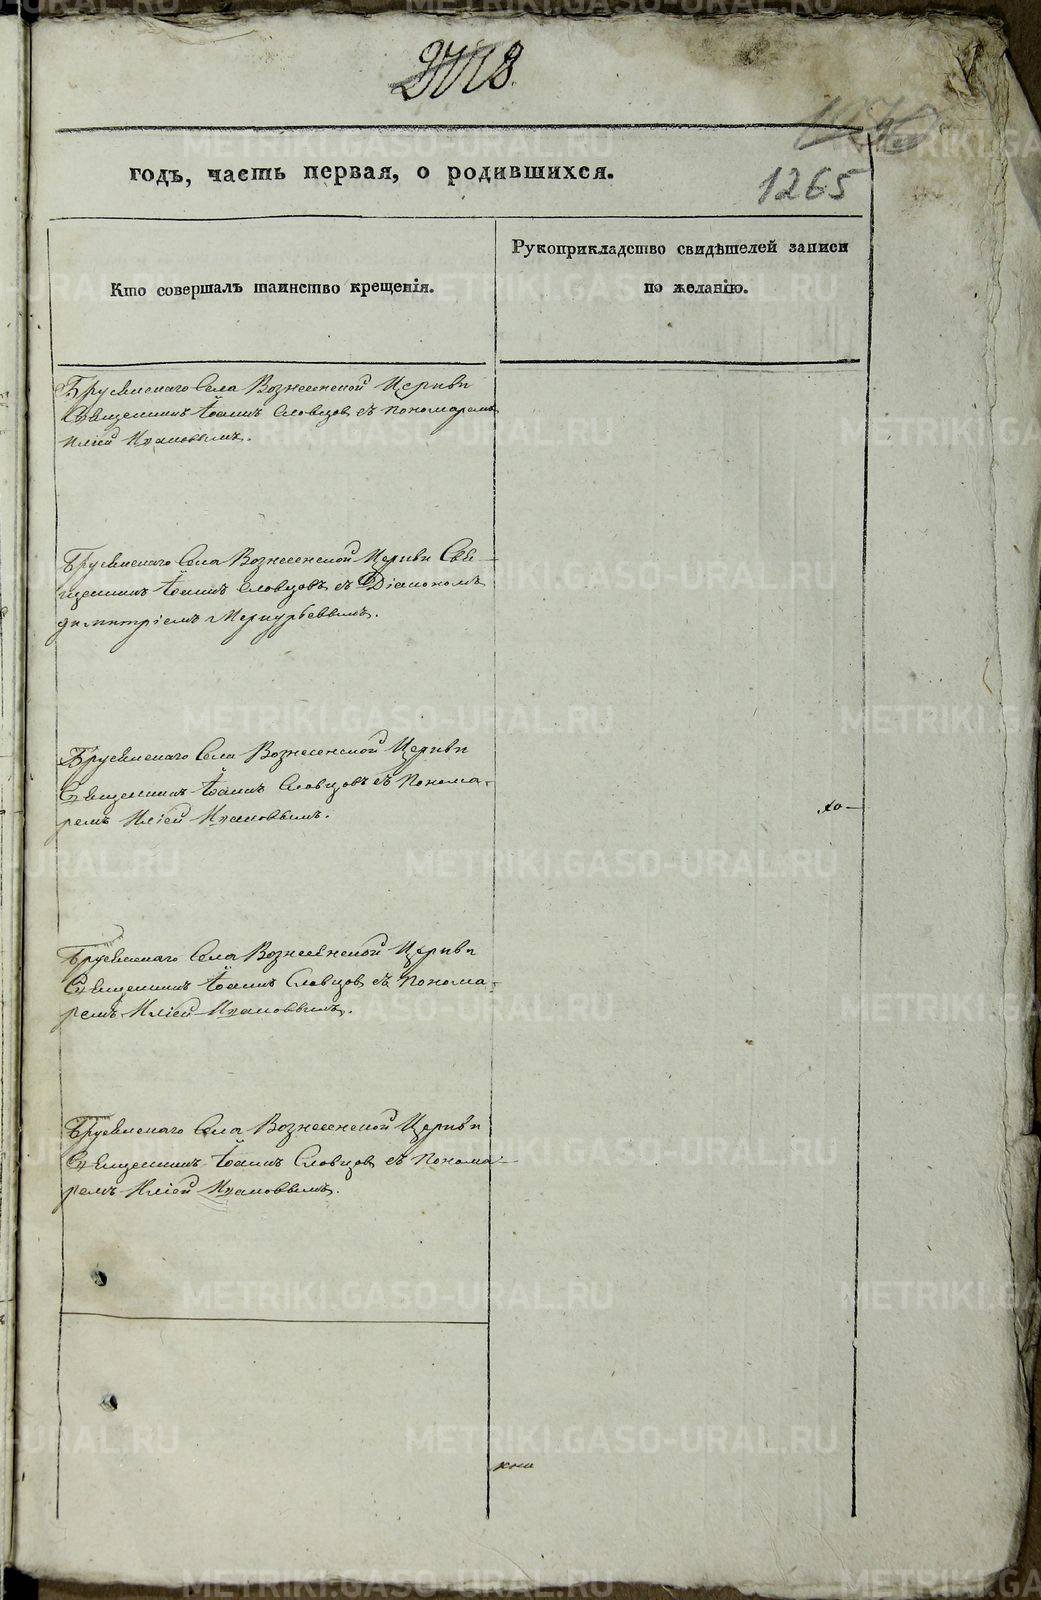 1265
годъ, часть первая, о родившихся.
Кто совершалъ таинство крещенія.
Рукоприкладство свидѣтелей записи
по желанію.
Бруснянскаго Села Вознесенской Церкви
Священникъ Іоаннъ Словцов съ пономаремъ
Иліей
Бруснянскаго Села Вознесенской Церкви Свя-
щенникъ Іоаннъ Словцовъ съ Діакономъ
димитріемъ Меркурьевымъ.
Бруснянскаго Села Вознесенской Церкви
Священникъ Іоаннъ Словцовъ съ Понома-
ремъ Иліей
Бруснянскаго Села Вознесенской Церкви
Священникъ Іоаннъ Словцов съ Понома-
ремъ Иліей
Бруснянскаго Села Вознесенской Церкви
Священникъ Іоаннъ Словцов съ Понома-
ремъ Иліей
METRIKI.GASO-URAL.RU